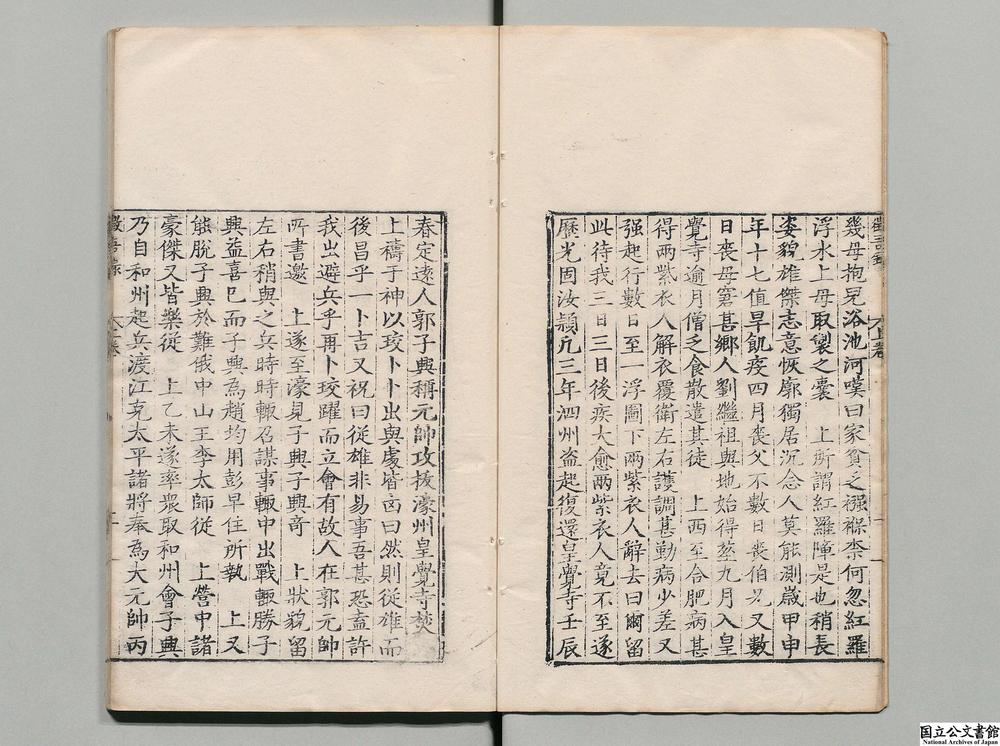 幾母抱兒浴池河嘆曰家貧乏襁褓柰何忽紅羅
浮水上母取製之囊　上所謂紅羅障是也稍長
姿貌雄傑志意恢廓獨居沉念人莫能測歲甲申
年十七值旱飢疫四月喪父不數日喪伯兄又數
日喪母窘甚鄉人劉繼祖與地始得塟九月入皇
覺寺逾月僧乏食散遣其徒　上西至合肥病甚
得兩紫衣人解衣覆衛左右護調甚勤病少差又
強起行數日至一浮圖下兩紫衣人辭去曰爾留
此待我三日三日後疾大愈兩紫衣人竟不至遂
歷光固汝潁凡三年泗州盗起復還皇覺寺壬辰
春定遠人郭子興稱元帥攻拔濠州皇覺寺焚
上禱于神以珓卜卜出與處皆凶曰然則從雄而
後昌乎一卜吉又祝曰從雄非易事吾甚恐盍許
我出避兵乎再卜珓躍而立會有故人在郭元帥
所書邀　上遂至濠見子興子興奇　上狀貌留
左右稍與之兵時時輙召謀事輙中出戰輙勝子
興益喜已而子興為趙均用彭早住所執　上又
能脫子興於難俄中山王李太師從　上營中諸
豪傑又皆樂從　上乙未遂率衆取和州會子興
乃自和州起兵渡江克太平諸將奉為大元帥丙
國立公文書館
National Archives of Japan